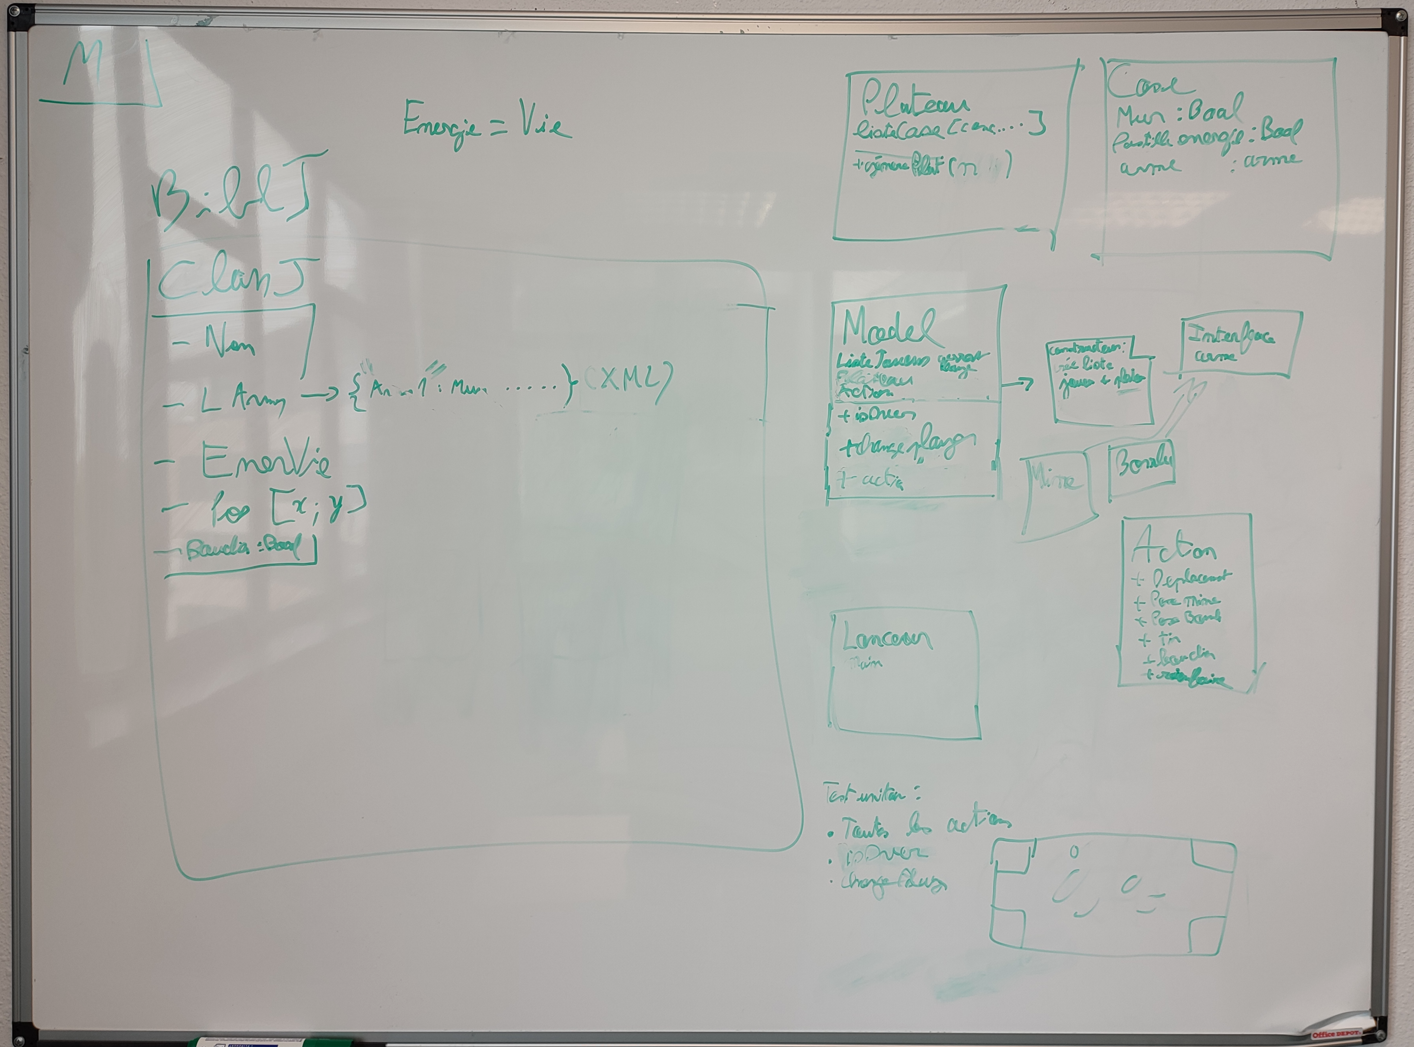 M
Energie = Vie
BiblJ
ClassJ
- Nom
- L Armes → {"Arme1" : Mun ......} (XML)
- EnerVie
- Pos [x; y]
- Bouclier : Bool
Plateau
listeCase [case....]
+ génère Plat (n )
Case
Mur : Bool
Pastille energie : Bool
arme : arme
Model
Liste Joueurs
Plateau
Action
+ isOver
+ change player
+ action
constructeur :
liste
joueurs + plateau
Interface
arme
Mine
Bombe
Action
+ Deplacement
+ Pose Mine
+ Pose Bomb
+ tir
+ bouclier
+ rien faire
Lanceur
main
Test unitair :
• Toutes les actions
• isOver
• change Player
Office DEPOT